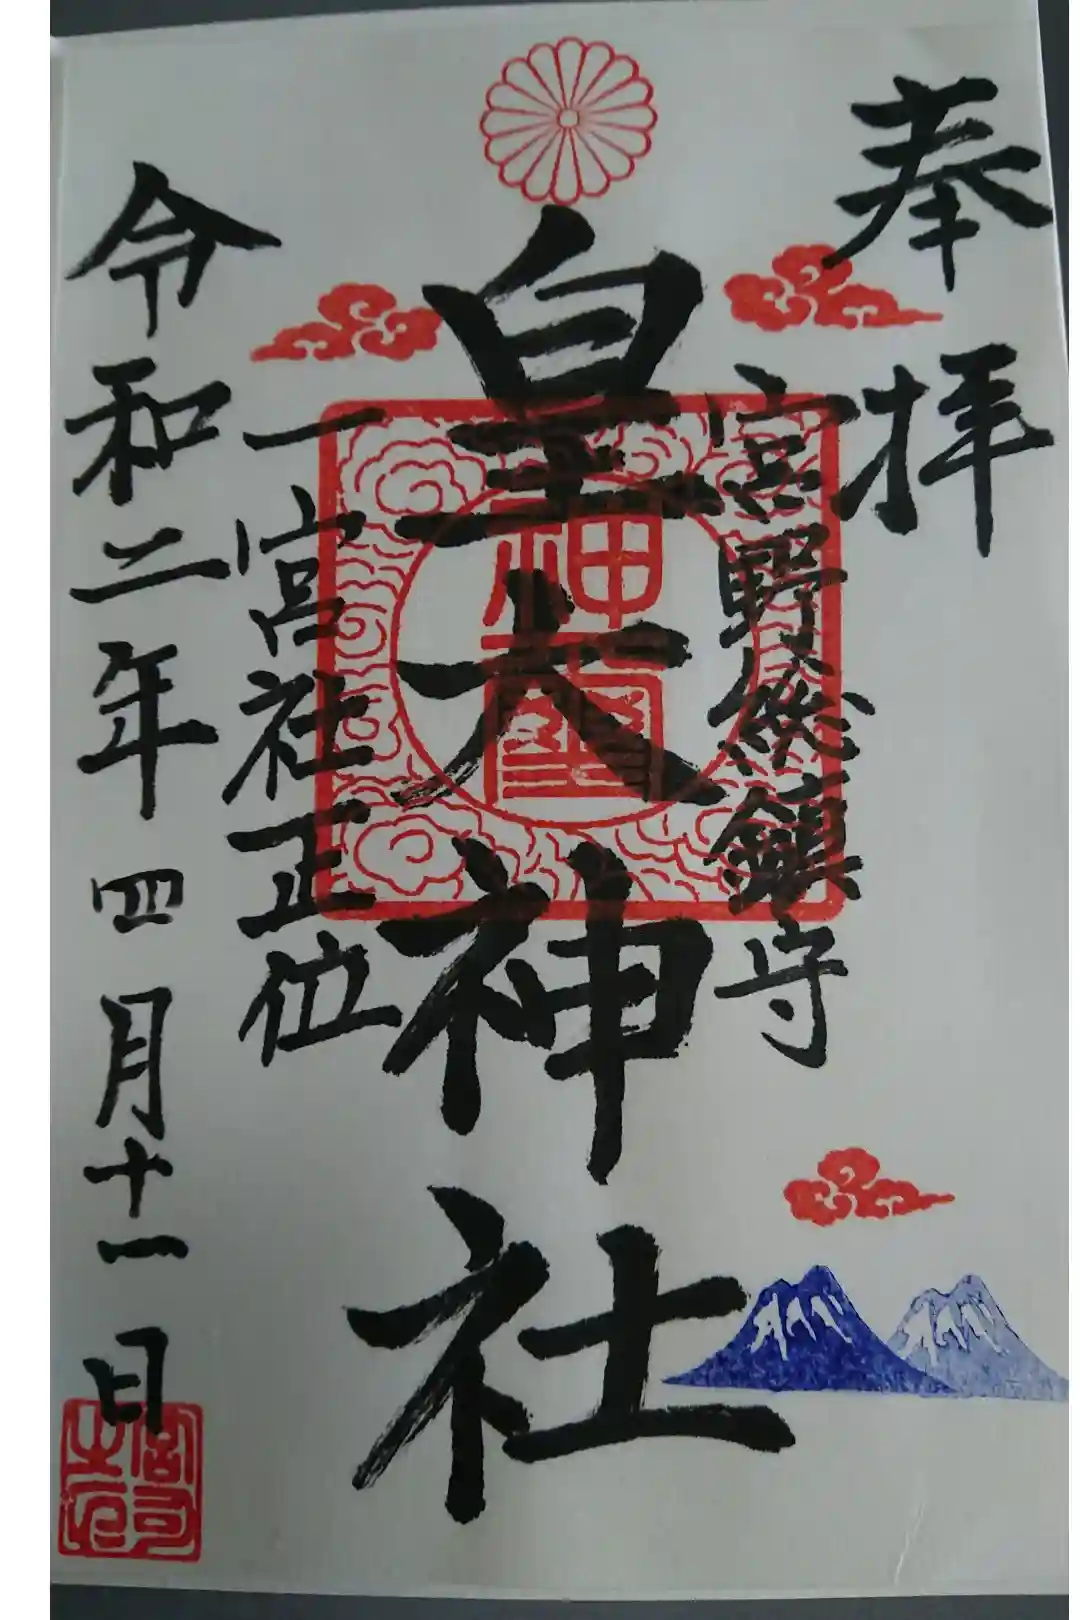 奉拝
宮野総鎮守
皇大神社
神璽
一宮社正位
令和二年四月十一日
宮司之印